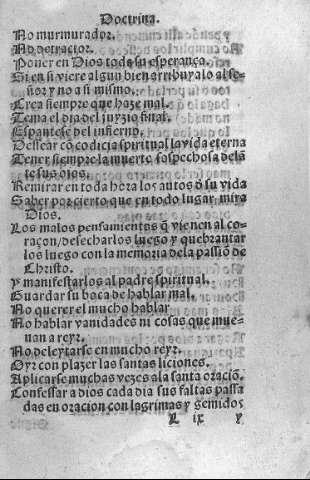 Doctrina.
No murmurador.
No detractor.
Poner en Dios toda su esperança.
Si en si viere algun bien atribuyalo al se-
ñor y no a si mismo.
Crea siempre que haze mal.
Tema el dia del juyzio final.
Espantese del infierno.
Dessear cō codicia spiritual la vida eterna
Tener siempre la muerte sospechosa delā
te sus ojos.
Remirar en toda hora los autos d̄ su vida
Saber por cierto que en todo lugar mira
Dios.
Los malos pensamientos q̄ vienen al co-
raçon/desecharlos luego y quebrantar
los luego con la memoria dela passiō de
Christo.
y manifestarlos al padre spiritual.
Guardar su boca de hablar mal.
No querer el mucho hablar
No hablar vanidades ni cosas que mue-
uan a reyr.
No deleytarse en mucho reyr.
Oyr con plazer las santas liciones.
Aplicarse muchas vezes ala santa oraciō.
Confessar a dios cada dia sus faltas passa
das en oracion con lagrimas y gemidos
L ix y